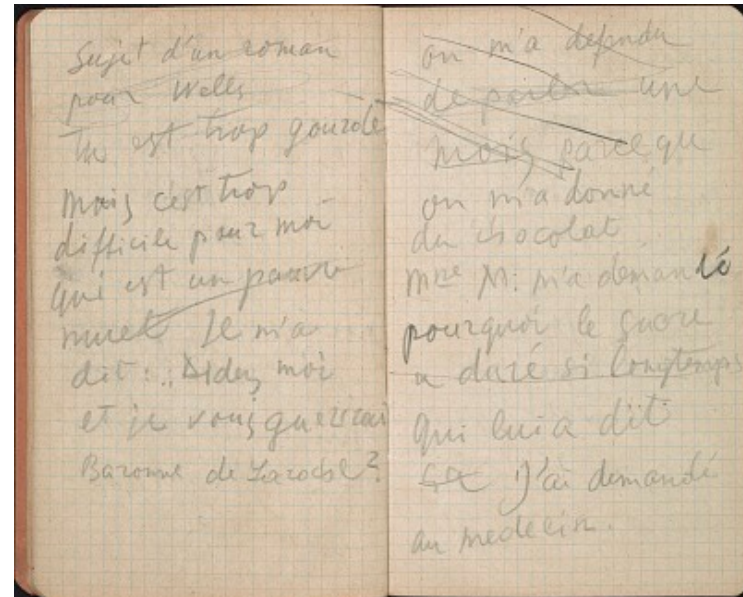 Sujet d'un roman
pour Wells
Tu est trop gourde
Mais c'est trop
difficile pour moi
Qui est un pauvre
muet Il m'a
dit: „Aidez moi
et je vous guerirai
Baronne de Laroche?
on m'a defendu
de parler une
mois parce qu
on m'a donné
du chocolat.
Mme M: m'a demandé
pourquoi le guerre
a duré si longtemps
Qui lui a dit
ça J'ai demandé
au medecin.